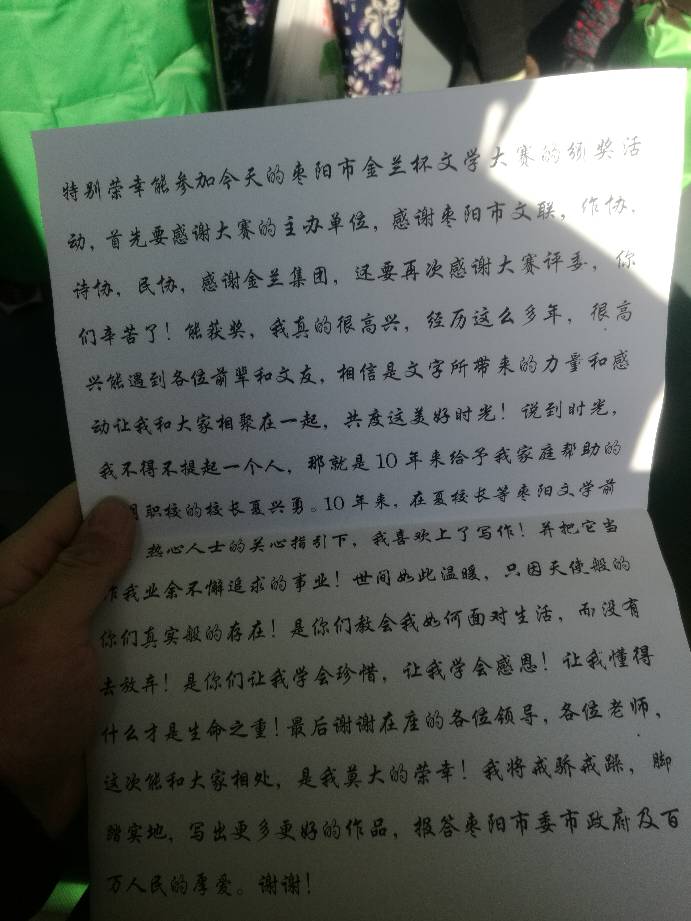 特别荣幸能参加今天的枣阳市金兰杯文学大赛的颁奖活
动，首先要感谢大赛的主办单位，感谢枣阳市文联，作协、
诗协，民协，感谢金兰集团，还要再次感谢大赛评委，你
们辛苦了！能获奖，我真的很高兴，经历这么多年，很高
兴能遇到各位前辈和文友，相信是文字所带来的力量和感
动让我和大家相聚在一起，共度这美好时光！说到时光，
我不得不提起一个人，那就是10年来给予我家庭帮助的
职校的校长夏兴勇。10年来，在夏校长等枣阳文学前
热心人士的关心指引下，我喜欢上了写作！并把它当
作我业余不懈追求的事业！世间如此温暖，只因天使般的
你们真实般的存在！是你们教会我如何面对生活，而没有
去放弃！是你们让我学会珍惜，让我学会感恩！让我懂得
什么才是生命之重！最后谢谢在座的各位领导，各位老师，
这次能和大家相处，是我莫大的荣幸！我将戒骄戒躁，脚
踏实地，写出更多更好的作品，报答枣阳市委市政府及百
万人民的厚爱。谢谢！